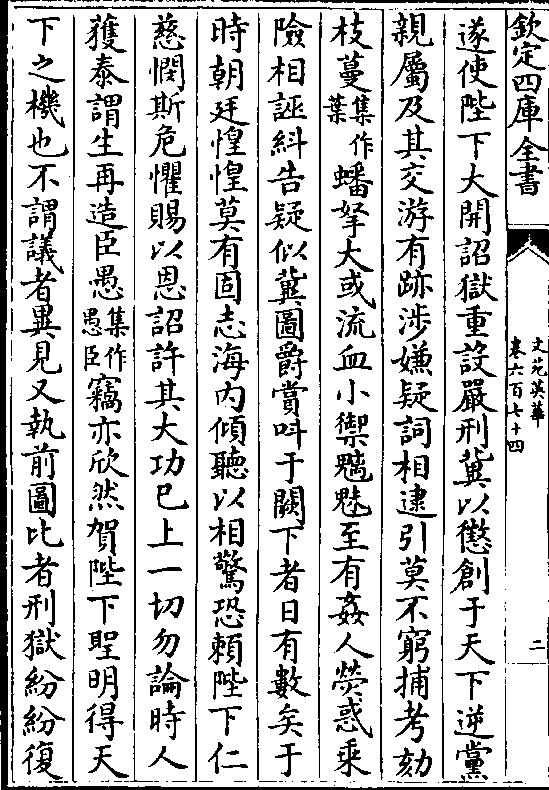 欽定四庫全書
文苑英華
卷六百七十四
二
遂使陛下大開詔獄重設嚴刑冀以懲創于天下逆黨
親屬及其交游有跡涉嫌疑詞相逮引莫不窮捕考劾
枝蔓集作葉蟠拏大或流血小禦魑魅至有姦人熒惑乗
險相誣糾告疑似冀圖爵賞呌于闕下者日有數矣于
時朝廷惶惶莫有固志海内傾聽以相驚恐賴陛下仁
慈憫斯危懼賜以恩詔許其大功已上一切勿論時人
獲泰謂生再造臣愚集作愚臣竊亦欣然賀陛下聖明得天
下之機也不謂議者異見又執前圖比者刑獄紛紛復